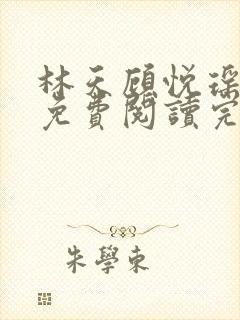 林天顧悅瑤
免費閱讀完
朱學東